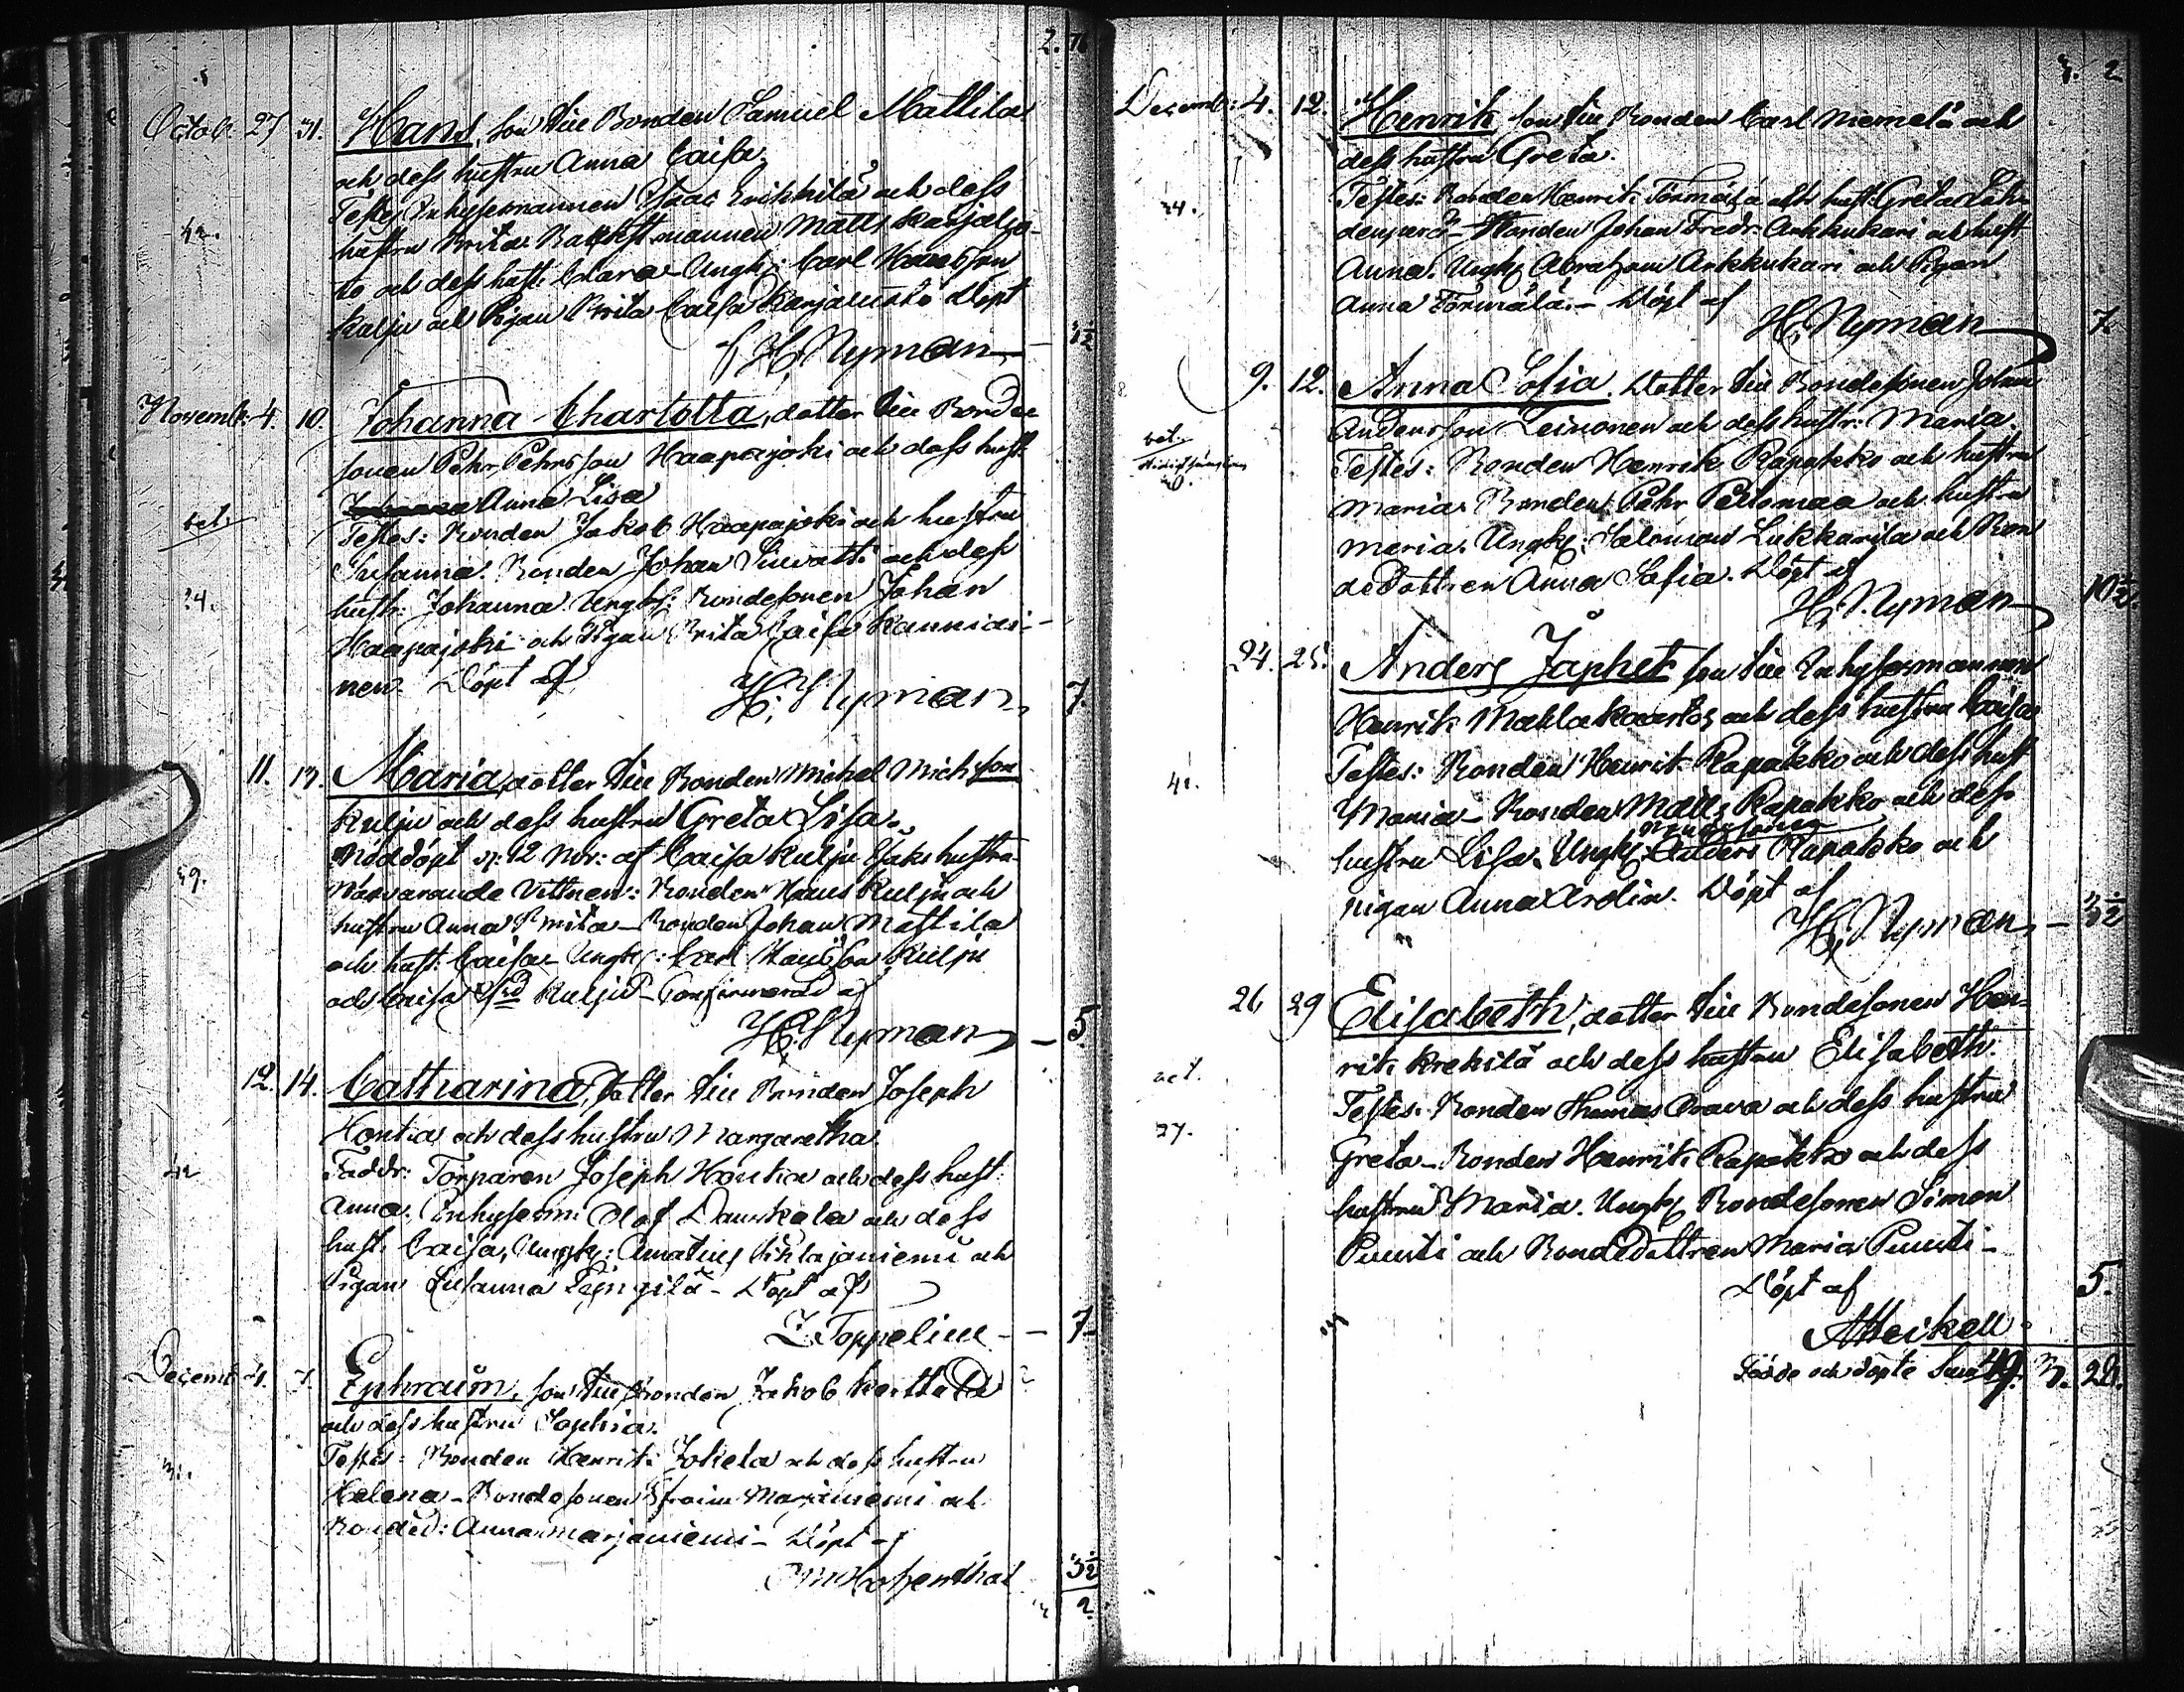 2.
Octob. 27 31. Hans, son till Bonden Samuel Mattila
och dess hustru Anna Caisa.
Testes Inhysesmannen Isaac Erikkilä och dess
hustru Brita. Matts Karjaluo-
to och dess hust. Clara - Ungk: Carl Hansson
Kulju och Pigan Brita Caisa Karjaluoto Döpt
af H. Nyman
Novemb: 4. 10. Johanna Charlotta, dotter till Bonde
sonen Pehr Pehrsson Haapajoki och dess hust.
Anna Lisa
bet.
Testes: Bonden Jakob Haapajoki och hustru
Susanna. Bonden Johan och dess
24.
hustr: Johanna. Ungk: Bondesonen Johan
Haapajoki och Pigan Brita Caisa Kanniai-
nen. Döpt af
H. Nyman 7.
11. 13. Maria, dotter till Bonden Michel Michsson
Kulju och dess hustru Greta Lisa.
Nöddöpt d: 12 Nov: af Caisa Kulju Isaks hustru
39.
Närvarande Vittnen: Bonden Hans Kulju och
hustru Anna Brita - Bonden Johan Mattila
och hust. Caisa - Ungk: Carl Hansson Kulju
och Caisa Kulju - Confirmerad af
H. Nyman - 5
12. 14. Catharina, Dotter till Bonden Joseph
Hontia och dess hustru Margaretha
42
Faddr: Torparen Joseph Hontia och dess hust:
Anna. Inhysesm: Olof och dess
hust. Caisa, Ungk: och
Pigan Susanna - Döpt af
Z. Toppelius - 7
Decemb 4. 7. Ephraim, son till Bonden Jakob
och dess hustru Sophia.
Testes: Bonden Henrik Jokela och dess hustru
Helena - Bondesonen Efraim Marjaniemi och
Bonded: Anna Marjaniemi - Döpt af
3½
2.
3. 2
Decemb: 4. 12. Henrik son till Bonden Carl Niemelä och
dess hustru Greta.
24.
Testes: Bonden Henrik Törmälä och hust: Greta Läh-
denperä - Bonden Johan Fredr: Arkkukari och hust
Anna. Ungk Abraham Arkkukari och Pigan
Anna Törmälä. - Döpt af
H. Nyman 7.
9. 12. Anna Sofia. Dotter till Bondesonen Johan
Andersson Leinonen och dess hustr: Maria.
bet.
Testes: Bonden Henrik Rapakko och hustru
Maria. Bonden Pehr Peltomaa och hustru
Maria. Ungk: Salomon Lukkarila och Bon
dedottren Anna Sofia. Döpt af
H. Nyman 10½.
24. 25. Anders Japhet son till Inhysesmannen
Henrik och dess hustru Caisa
Testes: Bonden Henrik Rapakko och dess hust
41.
Maria - Bonden Matts Rapakko och dess
Bondesonen
hustru Lisa. Ungk: Anders Rapakko och
pigan Anna. Döpt af
H. Nyman - 3½
26 29 Elisabeth, dotter till Bondesonen Hen-
rik Krekilä och dess hustru Elisabeth.
Testes: Bonden Thomas Orava och dess hustru
27.
Greta - Bonden Henrik Rapakko och dess
hustru Maria. Ungk Bondesonen Simon
Puusti och Bondedottren Maria Puusti -
Döpt af
5.
A Heikell.
Födde och döpte Sum 49. 3. 28.